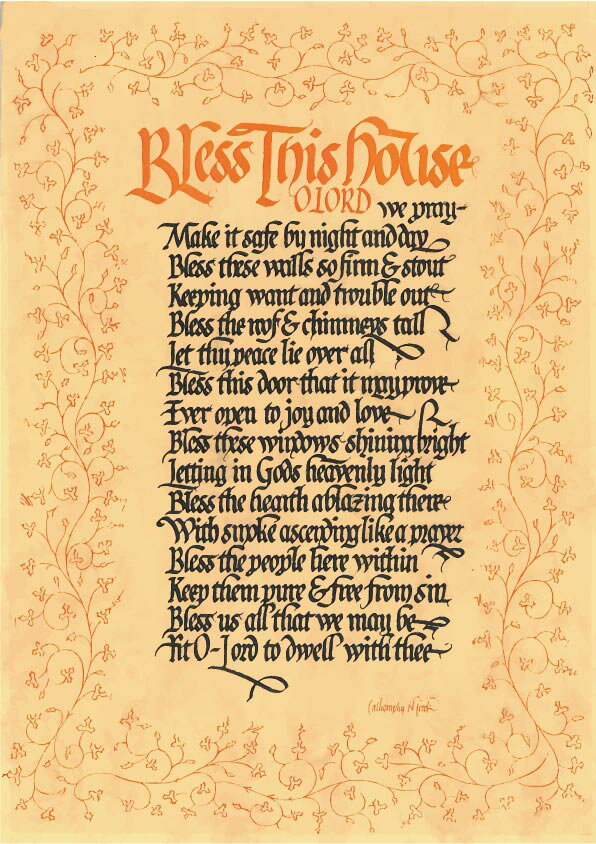 Bless This House
O LORD we pray-
Make it safe by night and day
Bless these walls so firm & stout
Keeping want and trouble out
Bless the roof & chimneys tall
Let thy peace lie over all
Bless this door that it may prove
Ever open to joy and love
Bless these windows shining bright
Letting in Gods heavenly light
Bless the hearth ablazing there
With smoke ascending like a prayer
Bless the people here within
Keep them pure & free from sin
Bless us all that we may be
Fit O-Lord to dwell with thee
Calligraphy